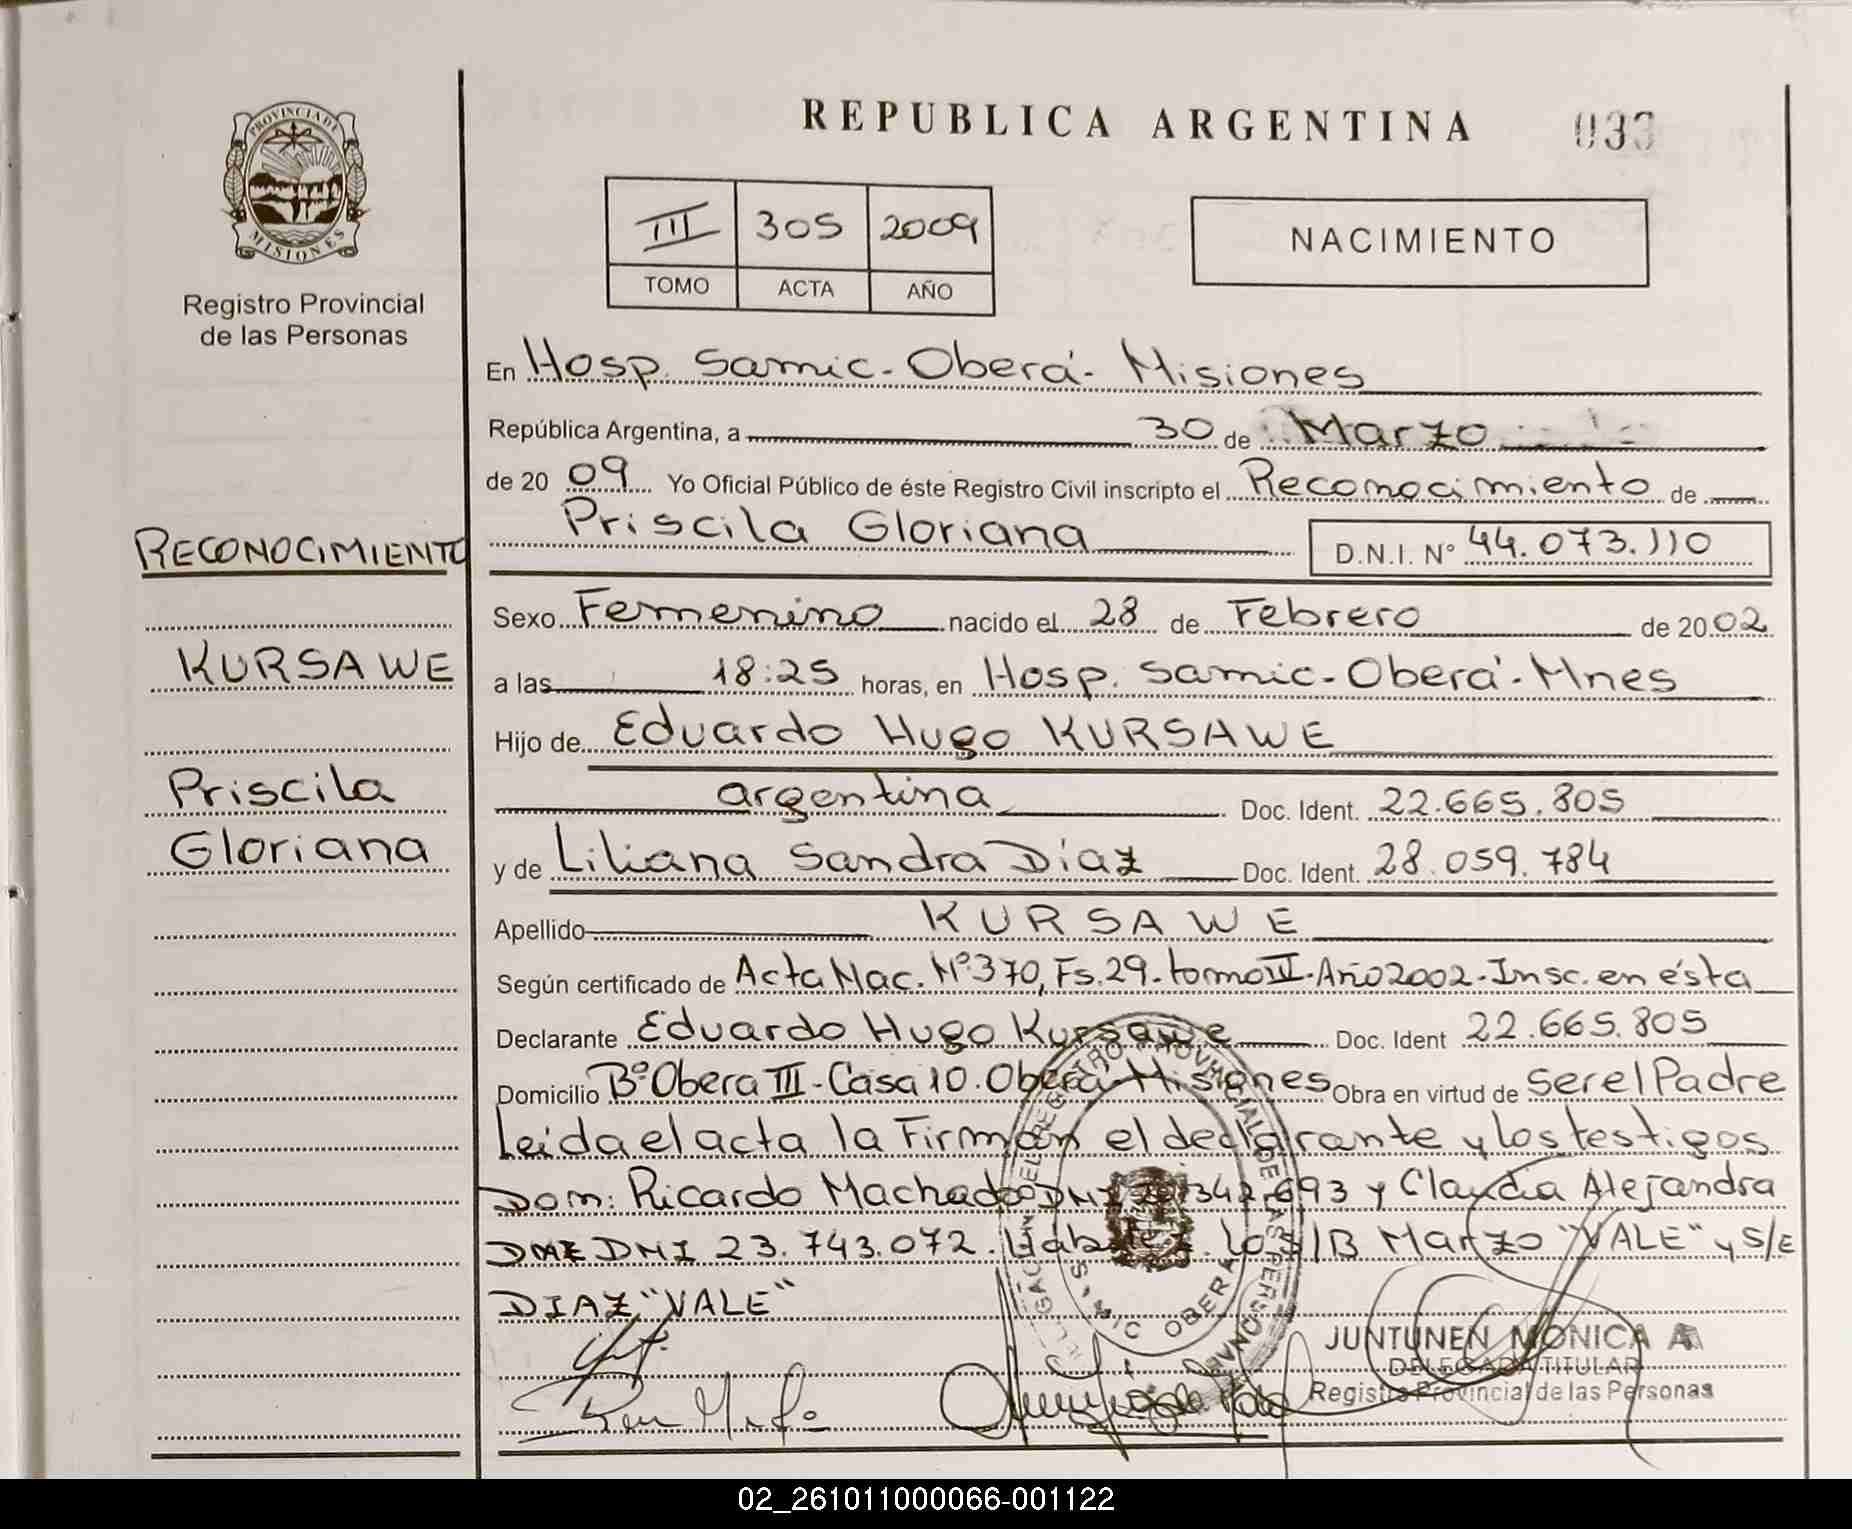 PROVINCIA DE
MISIONES
Registro Provincial
de las Personas
REPUBLICA ARGENTINA 033
III 305 2009
TOMO ACTA AÑO
NACIMIENTO
En Hosp. Samic - Oberá - Misiones
República Argentina, a 30 de Marzo
de 2009 Yo Oficial Público de éste Registro Civil inscripto el Reconocimiento de
Priscila Gloriana D.N.I. Nº 44.073.110
RECONOCIMIENTO
KURSAWE
Priscila
Gloriana
Sexo Femenino nacido el 28 de Febrero de 2002
a las 18:25 horas, en Hosp. Samic - Oberá - Mnes
Hijo de Eduardo Hugo KURSAWE
argentina Doc. Ident. 22.665.805
y de Liliana Sandra Diaz Doc. Ident. 28.059.784
Apellido KURSAWE
Según certificado de Acta Nac. Nº 370, Fs. 29 - tomo - Año 2002 - Insc. en ésta
Declarante Eduardo Hugo Kursawe Doc. Ident 22.665.805
Domicilio Bº Obera III - Casa 10. Oberá - Misiones Obra en virtud de ser el Padre
Leída el acta la Firman el declarante y los testigos
Dom: Ricardo Machado DNI 342.693 y Claudia Alejandra
DNI 23.743.072. S/B Marzo "VALE" y S/E
DIAZ "VALE"
SAMIC OBERA
JUNTUNEN MONICA A
DELEGADA TITULAR
Registro Provincial de las Personas
02_261011000066-001122